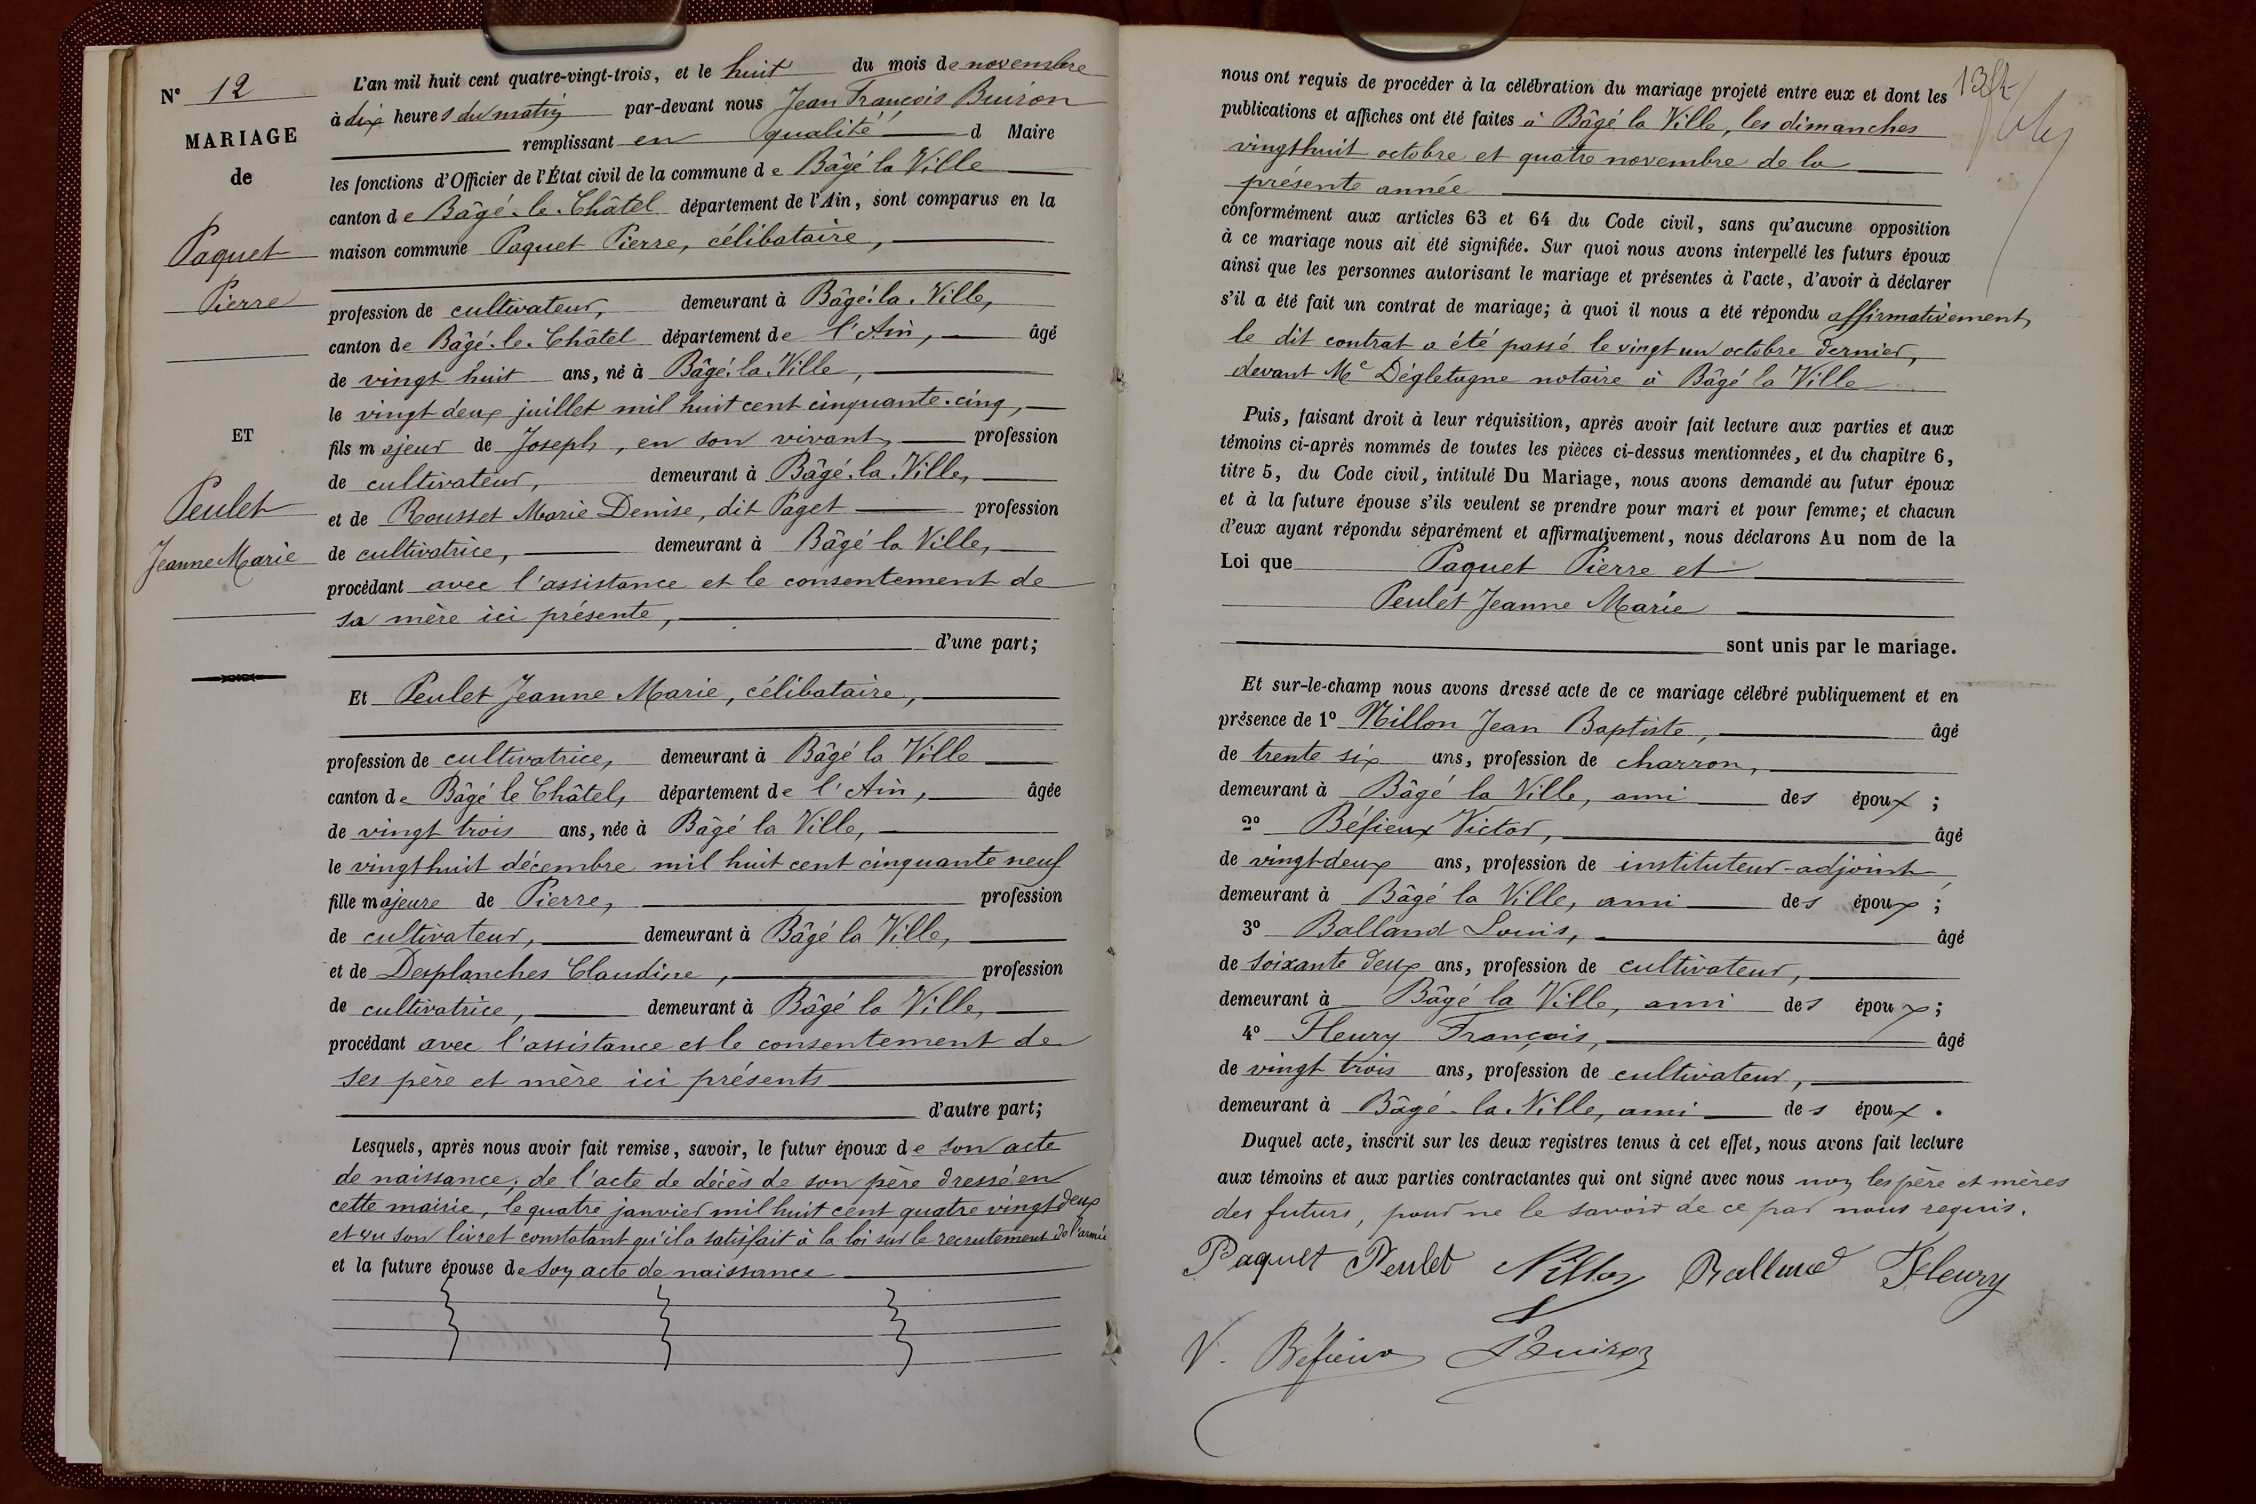 N° 12
MARIAGE
de
Paquet
Pierre
ET
Peulet
Jeanne Marie
L'an mil huit cent quatre-vingt-trois, et le huit du mois de novembre
à dix heures du matin par-devant nous Jean François Buiron
remplissant en qualité d Maire
les fonctions d'Officier de l'État civil de la commune de Bâgé la Ville
canton de Bâgé-le-Châtel département de l'Ain, sont comparus en la
maison commune Paquet Pierre, célibataire,
profession de cultivateur, demeurant à Bâgé-la-Ville,
canton de Bâgé-le-Châtel département de l'Ain, âgé
de vingt huit ans, né à Bâgé-la-Ville,
le vingt deux juillet mil huit cent cinquante-cinq,
fils majeur de Joseph, en son vivant, profession
de cultivateur, demeurant à Bâgé-la-Ville,
et de Rousset Marie Denise, dit Paget profession
de cultivatrice, demeurant à Bâgé la Ville,
procédant avec l'assistance et le consentement de
sa mère ici présente,
d'une part;
Et Peulet Jeanne Marie, célibataire,
profession de cultivatrice, demeurant à Bâgé la Ville
canton de Bâgé le Châtel, département de l'Ain, âgée
de vingt trois ans, née à Bâgé la Ville,
le vingt huit décembre mil huit cent cinquante neuf
fille majeure de Pierre, profession
de cultivateur, demeurant à Bâgé la Ville,
et de Desplanches Claudine, profession
de cultivatrice, demeurant à Bâgé la Ville,
procédant avec l'assistance et le consentement de
ses père et mère ici présents
d'autre part;
Lesquels, après nous avoir fait remise, savoir, le futur époux de son acte
de naissance; de l'acte de décès de son père dressé en
cette mairie, le quatre janvier mil huit cent quatre vingt deux
et vu son livret constatant qu'il a satisfait à la loi sur le recrutement de l'armée
et la future épouse de son acte de naissance
nous ont requis de procéder à la célébration du mariage projeté entre eux et dont les
publications et affiches ont été faites à Bâgé la Ville, les dimanches
vingt huit octobre et quatre novembre de la
présente année
conformément aux articles 63 et 64 du Code civil, sans qu'aucune opposition
à ce mariage nous ait été signifiée. Sur quoi nous avons interpellé les futurs époux
ainsi que les personnes autorisant le mariage et présentes à l'acte, d'avoir à déclarer
s'il a été fait un contrat de mariage; à quoi il nous a été répondu affirmativement,
le dit contrat a été passé le vingt un octobre dernier,
devant Me Dégletagne notaire à Bâgé la Ville
Puis, faisant droit à leur réquisition, après avoir fait lecture aux parties et aux
témoins ci-après nommés de toutes les pièces ci-dessus mentionnées, et du chapitre 6,
titre 5, du Code civil, intitulé Du Mariage, nous avons demandé au futur époux
et à la future épouse s'ils veulent se prendre pour mari et pour femme; et chacun
d'eux ayant répondu séparément et affirmativement, nous déclarons Au nom de la
Loi que Paquet Pierre et
Peulet Jeanne Marie
sont unis par le mariage.
Et sur-le-champ nous avons dressé acte de ce mariage célébré publiquement et en
présence de 1° Nillon Jean Baptiste, âgé
de trente six ans, profession de charron,
demeurant à Bâgé la Ville, ami des époux;
2° Béfieux Victor, âgé
de vingt-deux ans, profession de instituteur-adjoint
demeurant à Bâgé la Ville, ami des époux;
3° Balland Louis, âgé
de soixante deux ans, profession de cultivateur,
demeurant à Bâgé la Ville, ami des époux;
4° Fleury François, âgé
de vingt trois ans, profession de cultivateur,
demeurant à Bâgé-la-Ville, ami des époux.
Duquel acte, inscrit sur les deux registres tenus à cet effet, nous avons fait lecture
aux témoins et aux parties contractantes qui ont signé avec nous non les père et mères
des futurs, pour ne le savoir de ce par nous requis.
Paquet Peulet Nillon Balland Fleury
V. Béfieux Buiron